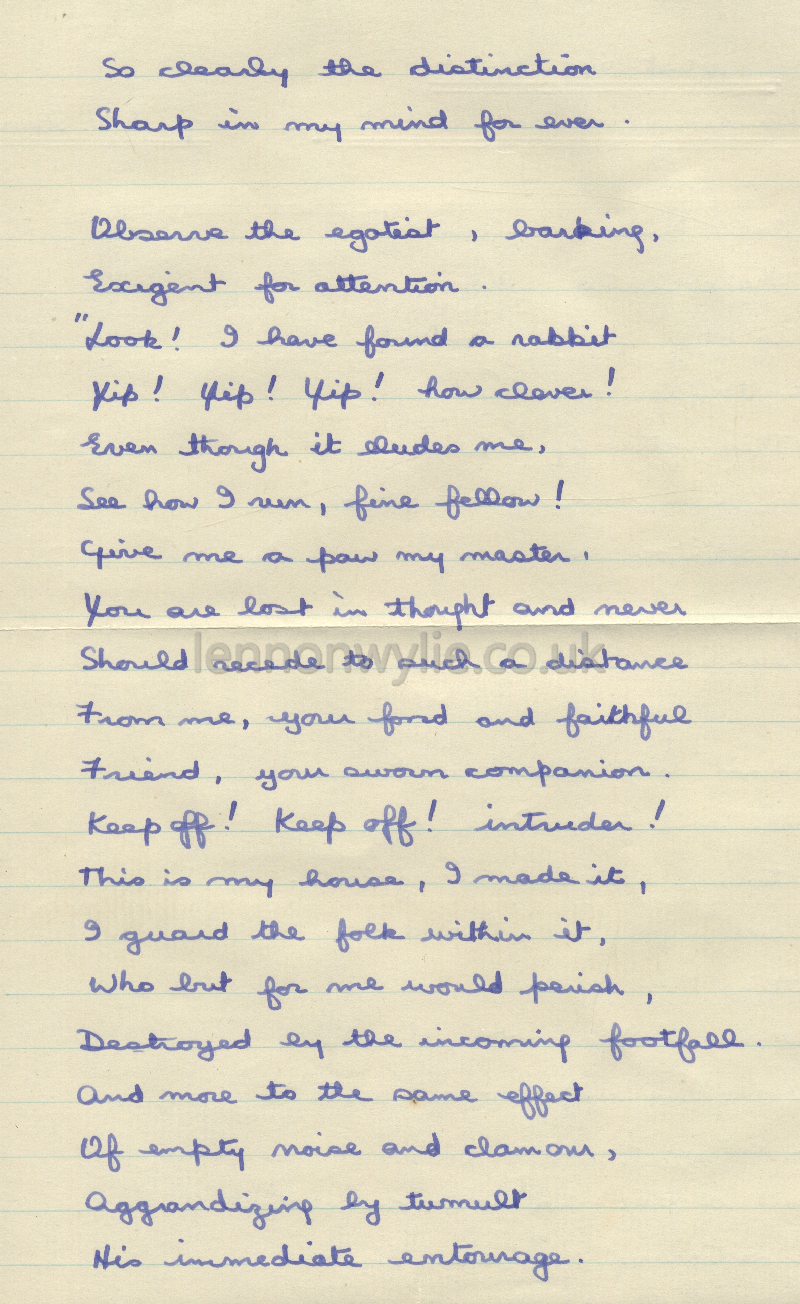 So clearly the distinction
Sharp in my mind for ever.
Observe the egotist, barking,
Exigent for attention.
"Look! I have found a rabbit
Yip! Yip! Yip! how clever!
Even though it eludes me,
See how I run, fine fellow!
Give me a paw my master.
You are lost in thought and never
lennonwylie.co.uk
Should recede to such a distance
From me, your fond and faithful
Friend, your sworn companion.
Keep off! Keep off! intruder!
This is my house, I made it,
I guard the folk within it,
Who but for me would perish,
Destroyed by the incoming footfall.
And more to the same effect
Of empty noise and clamour,
Aggrandizing by tumult
His immediate entourage.